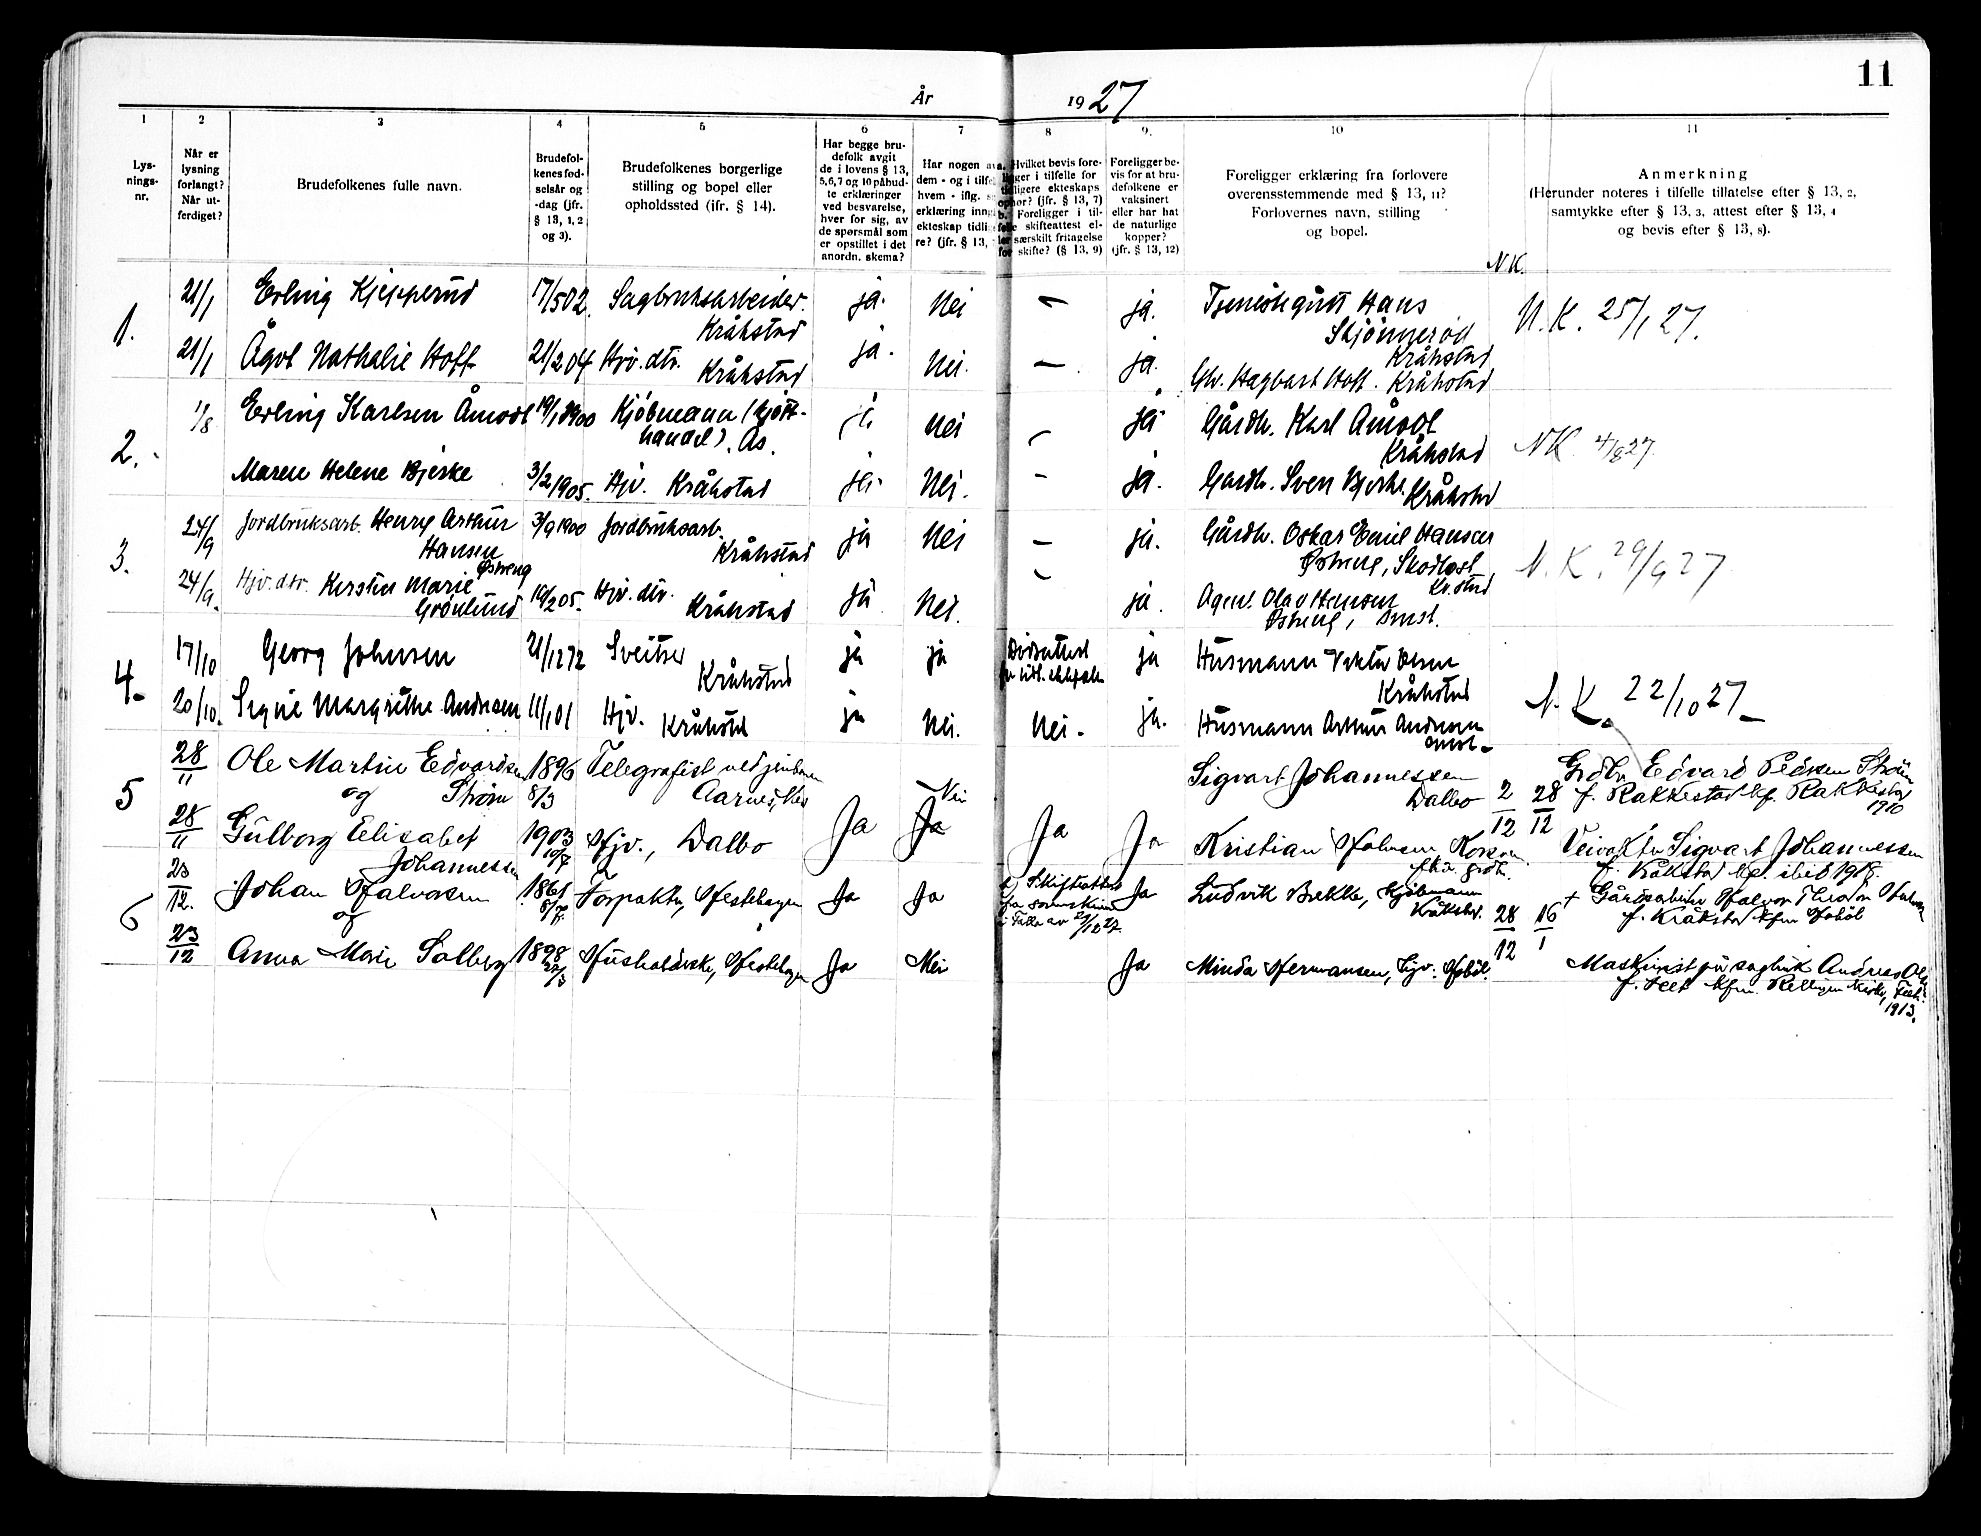 År 1927
11
1
Lys-
nings-
nr.
2
Når er
lysning
forlangt?
Når ut-
ferdiget?
3
Brudefolkenes fulle navn.
4
Brudefol-
kenes fød-
selsår og
-dag (jfr.
§ 13, 1, 2
og 3).
5
Brudefolkenes borgerlige
stilling og bopel eller
opholdssted (ifr. § 14).
6
Har begge bru-
defolk avgit
de i lovens § 13,
5,6,7 og 10 påbud-
te erklæringer
ved besvarelse,
hver for sig, av
de spørsmål som
er opstillet i det
anordn. skema?
7
Har nogen av
dem - og i tilfe
hvem - iflg.
erklæring inng
ekteskap tidli
re? (jfr. § 13,
8
Hvilket bevis fore-
ger i tilfelle for
ligere ekteskaps
ophør? (jfr. § 13, 7)
b. Foreligger i til-
felle skifteattest el-
ler særskilt fritagelse
for skifte? (§ 13, 9)
9.
Foreligger be-
vis for at bru-
defolkene er
vaksinert
eller har hat
de naturlige
kopper?
(jfr. § 13, 12)
10
Foreligger erklæring fra forlovere
overensstemmende med § 13, 11?
Forlovernes navn, stilling
og bopel.
N.K.
11
Anmerkning
(Herunder noteres i tilfelle tillatelse efter § 13, 2,
samtykke efter § 13, 3, attest efter § 13, 4
og bevis efter § 13, 8).
1. 21/1 Erling Kjepperud 17/5 02. Sagbruksarbeider. ja. Nei — ja. Hans
Kråkstad Skjønnerød N.K. 25/1 27.
Kråkstad
21/1 Ågot Nathalie Hoff 21/2 04 Hjv. dtr. ja. Nei. — ja. Hagbart Hoff. Kråkstad
Kråkstad
2. 1/8 Erling Karlsen Åmodt 19/1 1900 Kjöbmann (kjött- ja Nei — ja Gårdb. Karl Åmodt
handel). Ås. Kråkstad N.K. 4/8 27.
Maren Helene Bjerke 3/2 1905. Hjv. Kråkstad ja. Nei. - ja. Gårdb. Sven Bjerke Kråkstad
3. 24/9 Jordbruksarb. Henry Arthur 3/9 1900 Jordbruksarb. ja Nei — ja. Gårdb. Oskar Emil Hansen
Hansen Kråkstad Østreng, Skodbost
Østreng Kr.stad N.K. 29/9 27
24/9. Hjv. dtr. Kirsten Marie 19/2 05. Hjv. dtr. ja Nei. ja. Olav Hansen
Grönlund Kråkstad Østreng,
4. 17/10 Georg Johnsen 21/12 72 Sveitser ja ja Dödsattest ja Husmann Viktor Olsen
Kråkstad Kråkstad
20/10. Signe Margrethe Andresen 11/1 01 Hjv. ja Nei. Nei. ja. Husmann Arthur Andresen
Kråkstad N.K. 22/10 27
5 28/11 Ole Martin Edvardsen 1896 Telegrafist ved jernbanen Sigvart Johannessen Edvard Pedersen Strøm
og Strøm 8/3 Aarnes, Nes Nei Dalbo 2/12 28/12 f. Rakkestad kf. Rakkestad
1910
28/11 Gulborg Elisabet 1903 Hjv., Dalbo Ja Ja Ja Ja Kristian Veivokter Sigvart Johannessen
Johannessen 10/7 f. Kråkstad kf. ibid 1918.
6 23/12. Johan Halvorsen 1861 Forpakter, Ja Ja Skifteattest Ja Ludvik Bakke, Kjöbmann + Gårdsarbeider Halvor
og Kråkstad. 28/12 16/1 f. Kråkstad kfm Hobøl
23/12 Anna Marie Solberg 1898 Husholderske, Ja Nei Ja Minda Hermansen, Hjv. Hobøl. Maskinist på sagbruk Andreas
22/3 1913.